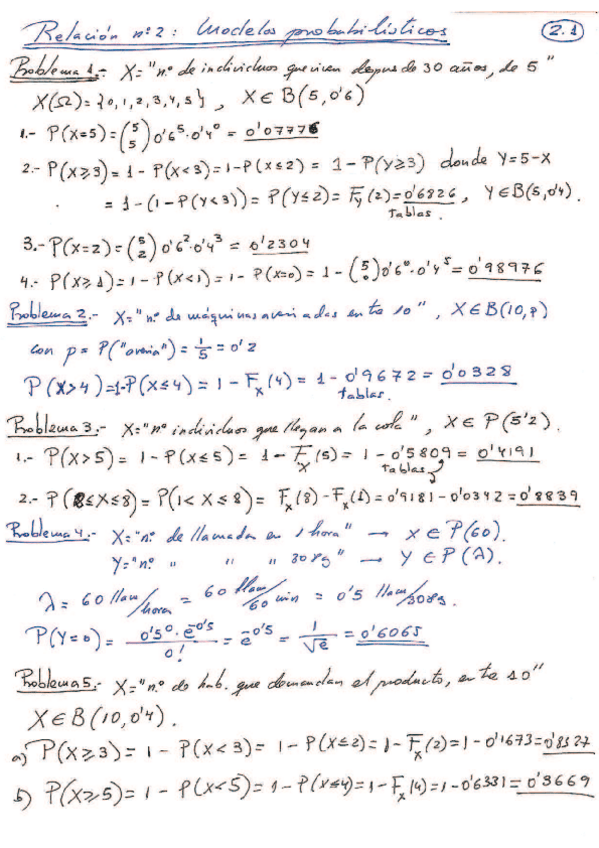 Relación nº 2: Modelos probabilísticos
2.1
Problema 1.- X="nº de individuos que viven después de 30 años, de 5"
X(Ω)={0,1,2,3,4,5}, X∈B(5,0'6)
1.- P(X=5)=(5 5)0'6^5·0'4^0=0'07776
2.- P(X≥3)=1-P(X<3)=1-P(X≤2)=1-P(Y≥3) donde Y=5-X
=1-(1-P(Y<3))=P(Y≤2)=F_Y(2)=0'6826, Y∈B(5,0'4).
tablas.
3.- P(X=2)=(5 2)0'6^2·0'4^3=0'2304
4.- P(X≥1)=1-P(X<1)=1-P(X=0)=1-(5 0)0'6^0·0'4^5=0'98976
Problema 2.- X="nº de máquinas averiadas entre 10", X∈B(10,p)
con p=P("avería")=1/5=0'2
P(X>4)=1-P(X≤4)=1-F_X(4)=1-0'9672=0'0328
tablas.
Problema 3.- X="nº individuos que llegan a la cola", X∈P(5'2).
1.- P(X>5)=1-P(X≤5)=1-F_X(5)=1-0'5809=0'4191
tablas
2.- P(2≤X≤8)=P(1<X≤8)=F_X(8)-F_X(1)=0'9181-0'0342=0'8839
Problema 4.- X="nº de llamada en 1 hora" → X∈P(60).
Y="nº " " " 30 sg" → Y∈P(λ).
λ=60 llam/hora=60 llam/60 min=0'5 llam/30 sg.
P(Y=0)=0'5^0·e^-0'5/0!=e^-0'5=1/√e=0'6065
Problema 5.- X="nº de hab. que demandan el producto, entre 10"
X∈B(10,0'4).
a) P(X≥3)=1-P(X<3)=1-P(X≤2)=1-F_X(2)=1-0'1673=0'8327
b) P(X≥5)=1-P(X<5)=1-P(X≤4)=1-F_X(4)=1-0'6331=0'3669